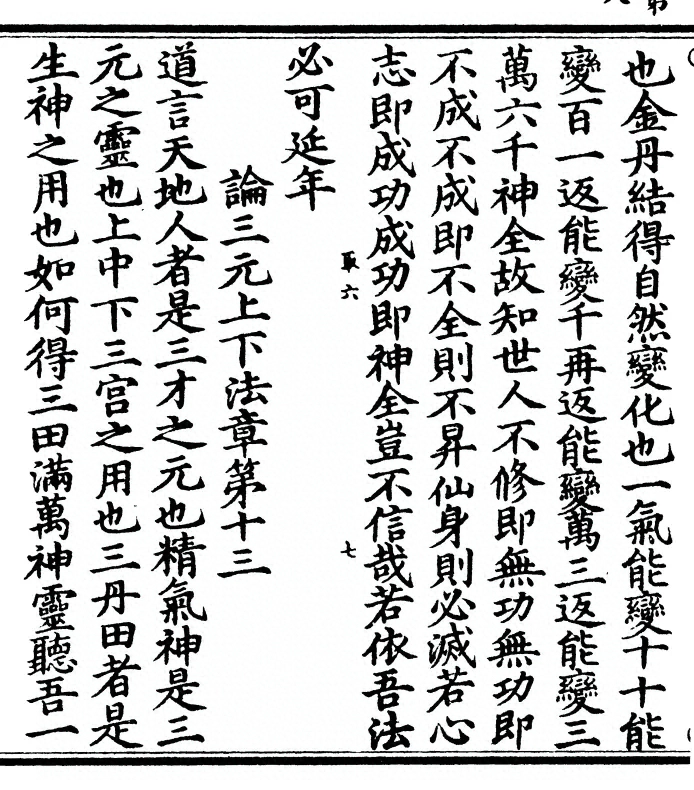 也金丹結得自然變化也一氣能變十十能
變百一返能變千再返能變萬三返能變三
萬六千神全故知世人不修即無功無功即
不成不成即不全則不昇仙身則必滅若心
志即成功成功即神全豈不信哉若依吾法
必可延年
論三元上下法章第十三
道言天地人者是三才之元也精氣神是三
元之靈也上中下三宮之用也三丹田者是
生神之用也如何得三田滿萬神靈聽吾一